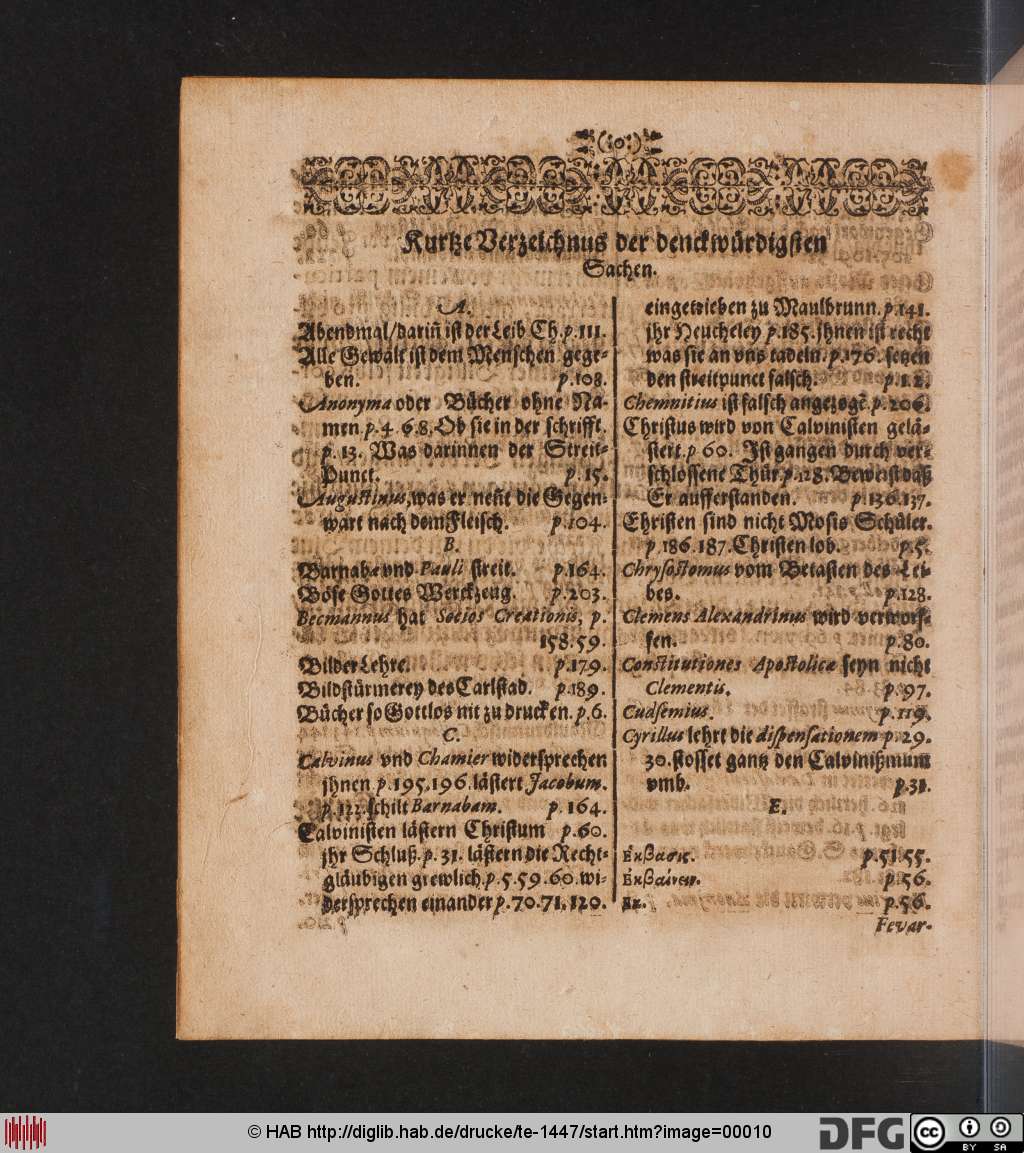 (:o:)
Kurtze Verzeichnus der denckwürdigsten
Sachen.
A.
Abendmal/dariñ ist der Leib Ch. p. 111.
Alle Gewalt ist dem Menschen gege-
ben. p. 108.
Anonyma oder Bücher ohne Na-
men p. 4. 6. 8. Ob sie in der schrifft.
p. 13. Was darinnen der Streit-
Punct. p. 15.
Augustinus, was er neñt die Gegen-
wart nach dem Fleisch. p. 104.
B.
Barnabæ vnd Pauli streit. p. 164.
Böse Gottes Werckzeug. p. 203.
Becmannus hat Socios Creationis, p.
158. 59.
Bilder Lehre. p. 179.
Bildstürmerey des Carlstad. p. 189.
Bücher so Gottlos nit zu drucken. p. 6.
C.
Calvinus vnd Chamier widersprechen
jhnen p. 195. 196. lästert Jacobum.
p. 122. schilt Barnabam. p. 164.
Calvinisten lästern Christum p. 60.
jhr Schluß. p. 31. lästern die Recht-
gläubigen grewlich. p. 5. 59. 60. wi-
dersprechen einander p. 70. 71. 120.
eingetrieben zu Maulbrunn. p. 141.
jhr Heucheley p. 185. jhnen ist recht
was sie an vns tadeln. p. 176. setzen
den streitpunct falsch. p. 12.
Chemnitius ist falsch angezogẽ p. 206.
Christus wird von Calvinisten gelä-
stert. p 60. Ist gangen durch ver-
schlossene Thür. p. 128. Beweist daß
Er aufferstanden. p. 136. 137.
Christen sind nicht Mosis Schüler.
p. 186. 187. Christen lob. p. 5.
Chrysostomus vom Betasten des Lei-
bes. p. 128.
Clemens Alexandrinus wird verworf-
fen. p. 80.
Constitutiones Apostolicæ seyn nicht
Clementis. p. 97.
Cudsemius. p. 119.
Cyrillus lehrt die dispensationem p. 29.
30. stosset gantz den Calvinißmum
vmb. p. 31.
E.
Ἔκβασις. p. 51. 55.
Ἐκβαίνειν. p. 56.
Ἐκ. p. 56.
Fevar-
© HAB http://diglib.hab.de/drucke/te-1447/start.htm?image=00010
DFG
cc
BY SA